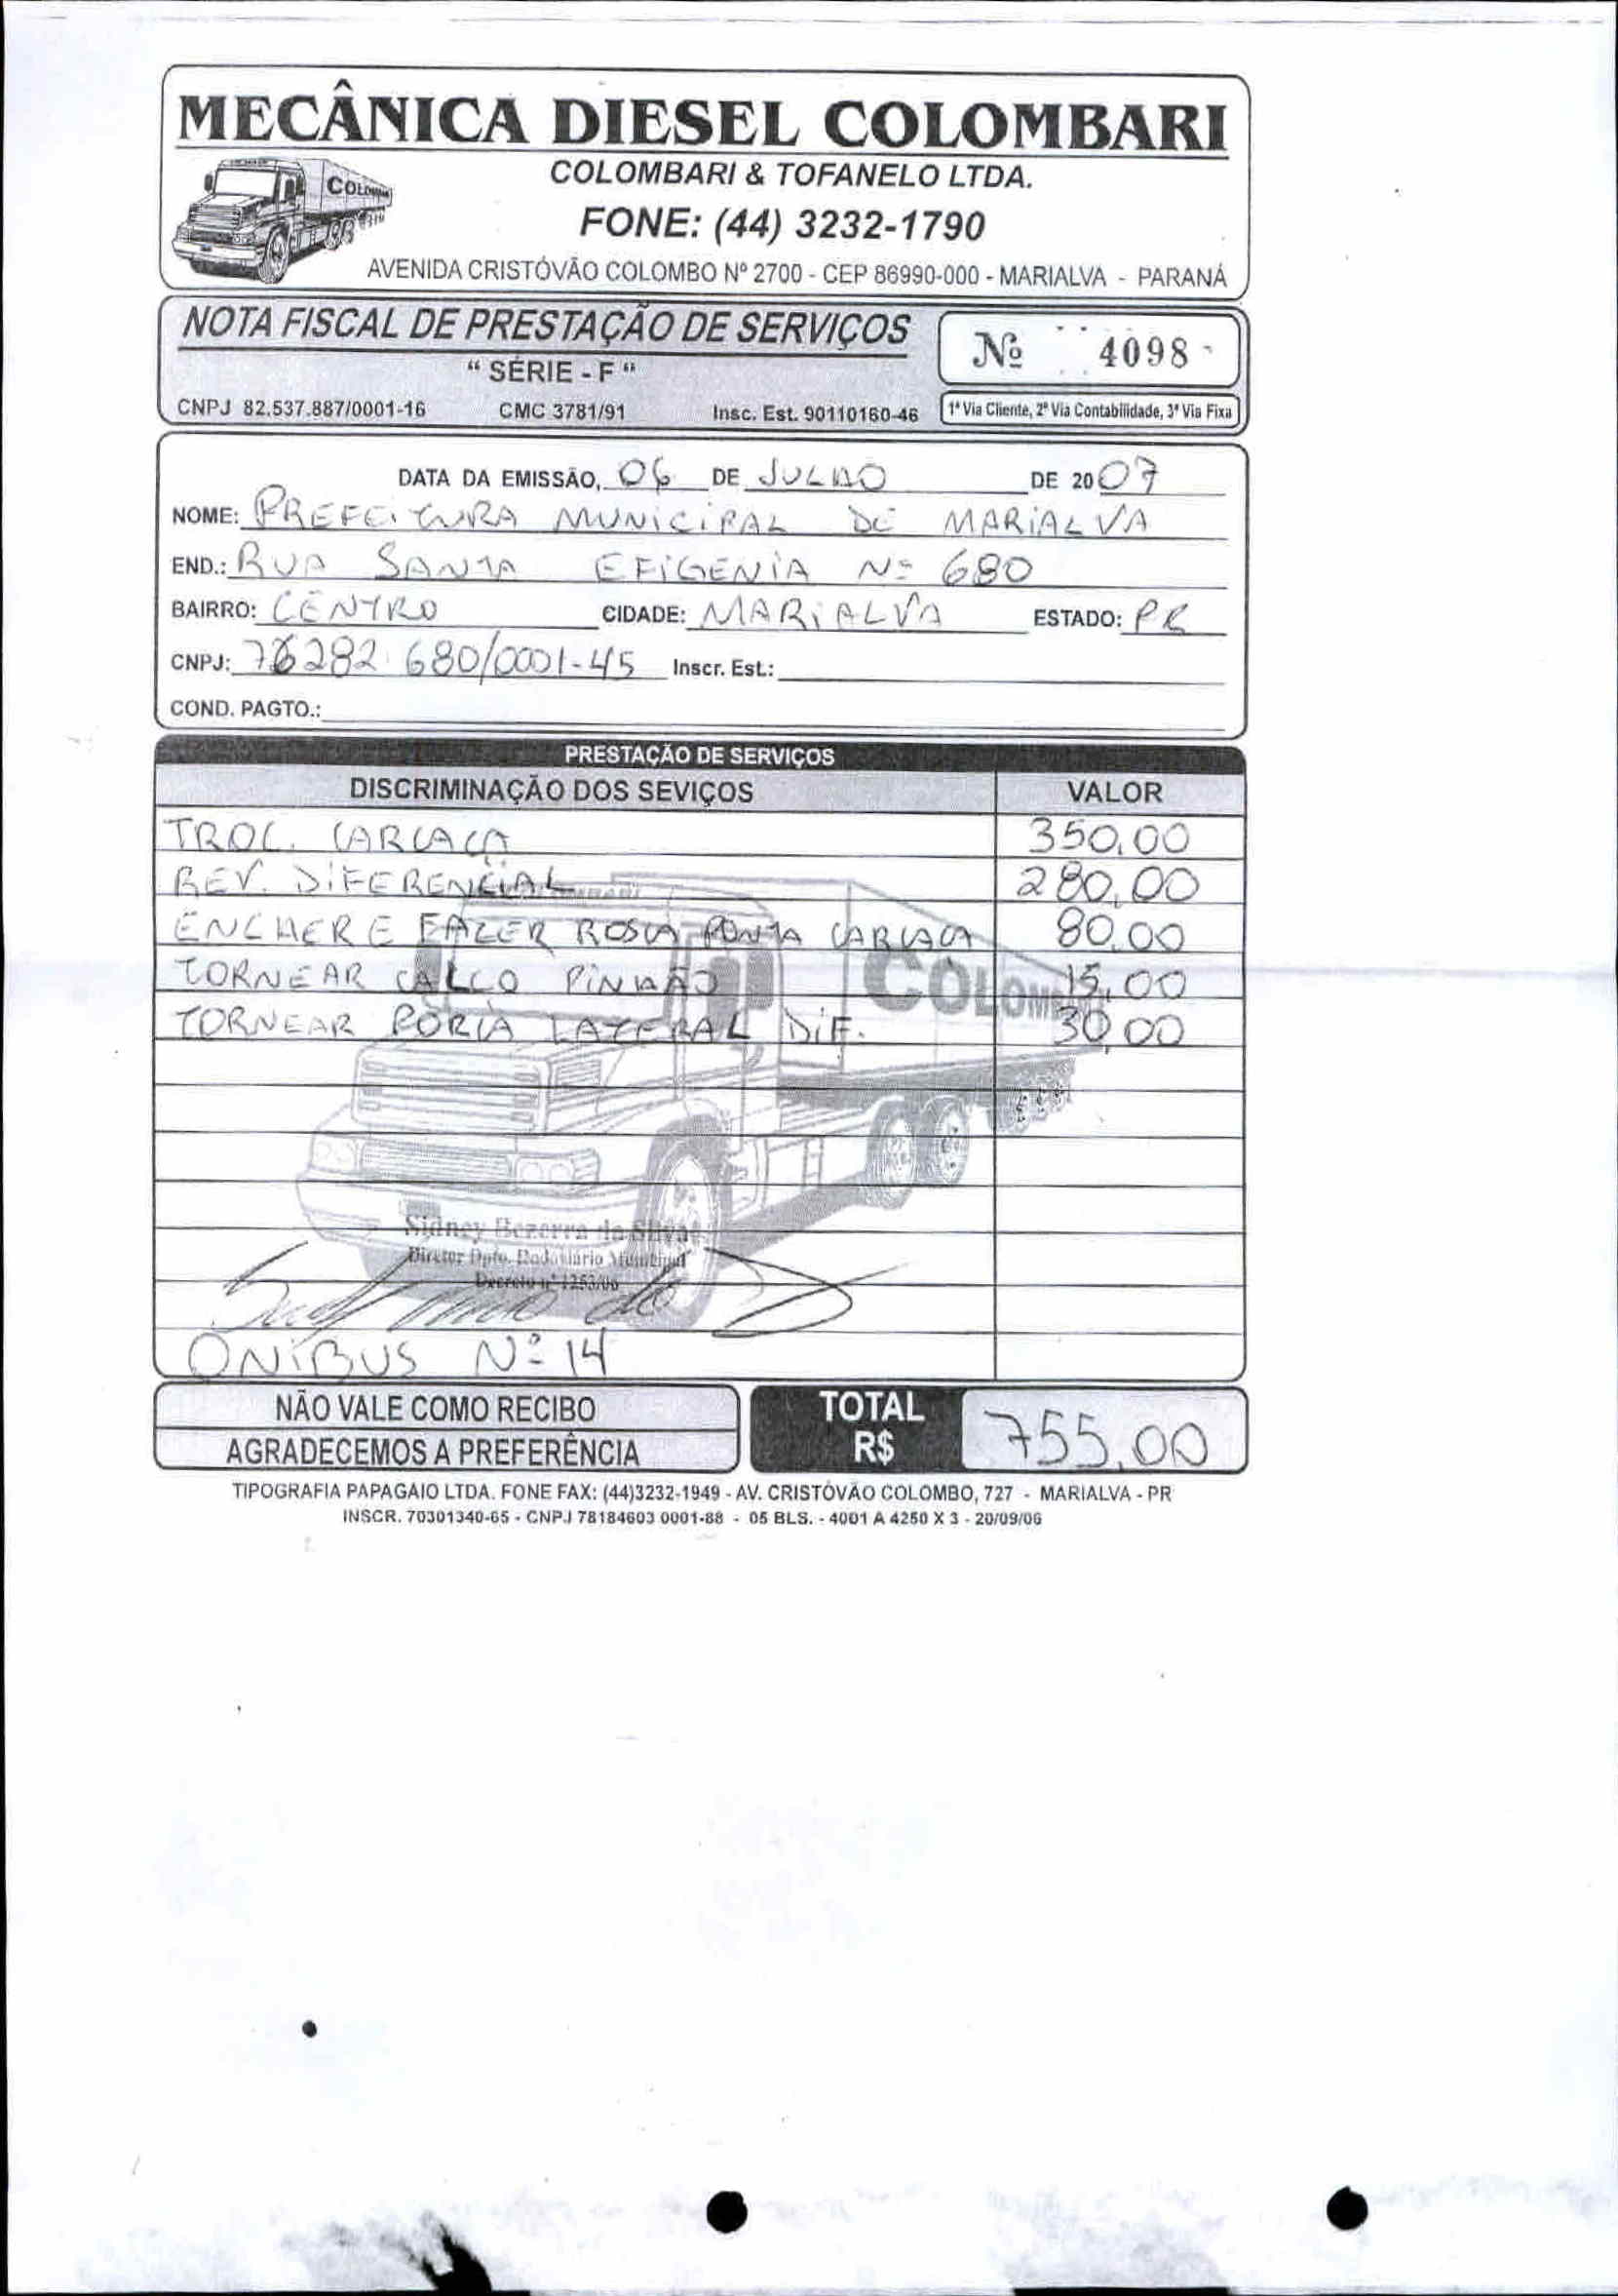 MECÂNICA DIESEL COLOMBARI
COLOMBARI & TOFANELO LTDA.
COLOMBARI
FONE: (44) 3232-1790
AVENIDA CRISTÓVÃO COLOMBO Nº 2700 - CEP 86990-000 - MARIALVA - PARANÁ
NOTA FISCAL DE PRESTAÇÃO DE SERVIÇOS
“ SÉRIE - F “
Nº 4098
CNPJ 82.537.887/0001-16 CMC 3781/91 Insc. Est. 90110160-46
1ª Via Cliente, 2ª Via Contabilidade, 3ª Via Fixa
DATA DA EMISSÃO, 06 DE JULHO DE 2007
NOME: PREFEITURA MUNICIPAL DE MARIALVA
END.: RUA SANTA EFIGENIA Nº 680
BAIRRO: CENTRO CIDADE: MARIALVA ESTADO: PR
CNPJ: 76282 680/0001-45 Inscr. Est.:
COND. PAGTO.:
PRESTAÇÃO DE SERVIÇOS
DISCRIMINAÇÃO DOS SEVIÇOS VALOR
TROC. CARCAÇA 350,00
REV. DIFERENCIAL 280,00
ENCHER E FAZER ROSCA PONTA CARCAÇA 80,00
TORNEAR CALCO PINHÃO 15,00
TORNEAR PORCA LATERAL DIF. 30,00
COLOMBARI
Sidney Bezerra da Silva
Diretor Dpto. Rodoviário Municipal
Decreto nº 1253/06
ONIBUS Nº 14
NÃO VALE COMO RECIBO
AGRADECEMOS A PREFERÊNCIA
TOTAL R$ 755,00
TIPOGRAFIA PAPAGAIO LTDA. FONE FAX: (44)3232-1949 - AV. CRISTÓVÃO COLOMBO, 727 - MARIALVA - PR
INSCR. 70301340-65 - CNPJ 78184603 0001-88 - 05 BLS. - 4001 A 4250 X 3 - 20/09/06